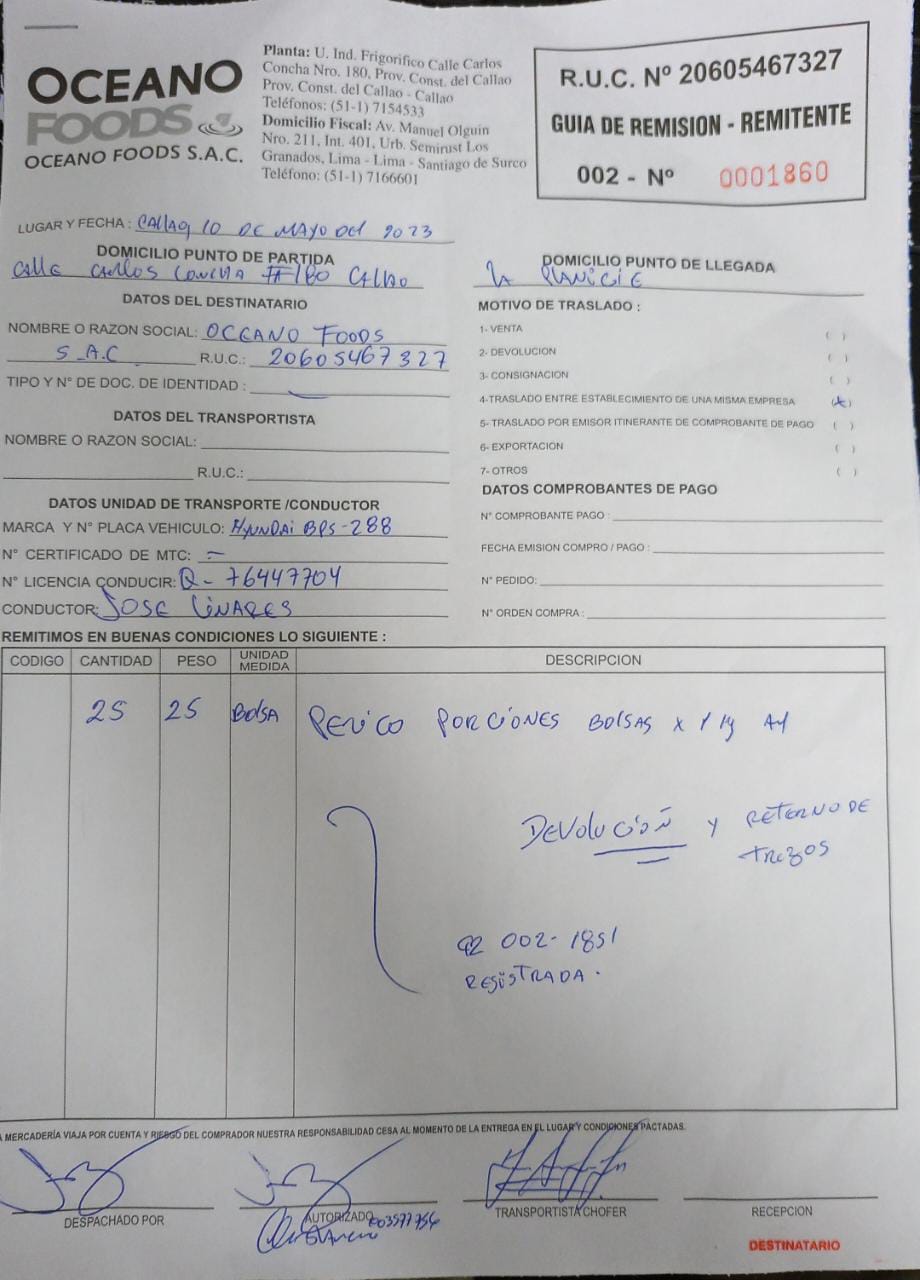 OCEANO
FOODS
OCEANO FOODS S.A.C.
Planta: U. Ind. Frigorifico Calle Carlos
Concha Nro. 180, Prov. Const. del Callao
Prov. Const. del Callao - Callao
Teléfonos: (51-1) 7154533
Domicilio Fiscal: Av. Manuel Olguin
Nro. 211, Int. 401, Urb. Semirust Los
Granados, Lima - Lima - Santiago de Surco
Teléfono: (51-1) 7166601
R.U.C. Nº 20605467327
GUIA DE REMISION - REMITENTE
002 - Nº 0001860
LUGAR Y FECHA : CALLAO, 10 DE MAYO DEL 2023
DOMICILIO PUNTO DE PARTIDA
CALLE CARLOS CONCHA #180 CALLAO
DOMICILIO PUNTO DE LLEGADA
LA PLANICIE
DATOS DEL DESTINATARIO
NOMBRE O RAZON SOCIAL: OCEANO FOODS
S.A.C R.U.C.: 20605467327
TIPO Y N° DE DOC. DE IDENTIDAD :
DATOS DEL TRANSPORTISTA
NOMBRE O RAZON SOCIAL:
R.U.C.:
DATOS UNIDAD DE TRANSPORTE /CONDUCTOR
MARCA Y N° PLACA VEHICULO: HYUNDAI BPS-288
N° CERTIFICADO DE MTC: -
N° LICENCIA CONDUCIR: Q-76447704
CONDUCTOR: JOSE LINARES
MOTIVO DE TRASLADO :
1- VENTA ( )
2- DEVOLUCION ( )
3- CONSIGNACION ( )
4-TRASLADO ENTRE ESTABLECIMIENTO DE UNA MISMA EMPRESA (x)
5- TRASLADO POR EMISOR ITINERANTE DE COMPROBANTE DE PAGO ( )
6- EXPORTACION ( )
7- OTROS ( )
DATOS COMPROBANTES DE PAGO
N° COMPROBANTE PAGO :
FECHA EMISION COMPRO / PAGO :
N° PEDIDO:
N° ORDEN COMPRA :
REMITIMOS EN BUENAS CONDICIONES LO SIGUIENTE :
CODIGO CANTIDAD PESO UNIDAD MEDIDA DESCRIPCION
25 25 BOLSA PERICO PORCIONES BOLSAS x 1 kg
DEVOLUCIÓN Y RETORNO DE
TROZOS
002-1851
REGISTRADA.
A MERCADERÍA VIAJA POR CUENTA Y RIESGO DEL COMPRADOR NUESTRA RESPONSABILIDAD CESA AL MOMENTO DE LA ENTREGA EN EL LUGAR Y CONDICIONES PACTADAS.
DESPACHADO POR
AUTORIZADO 003577756
TRANSPORTISTA CHOFER
RECEPCION
DESTINATARIO